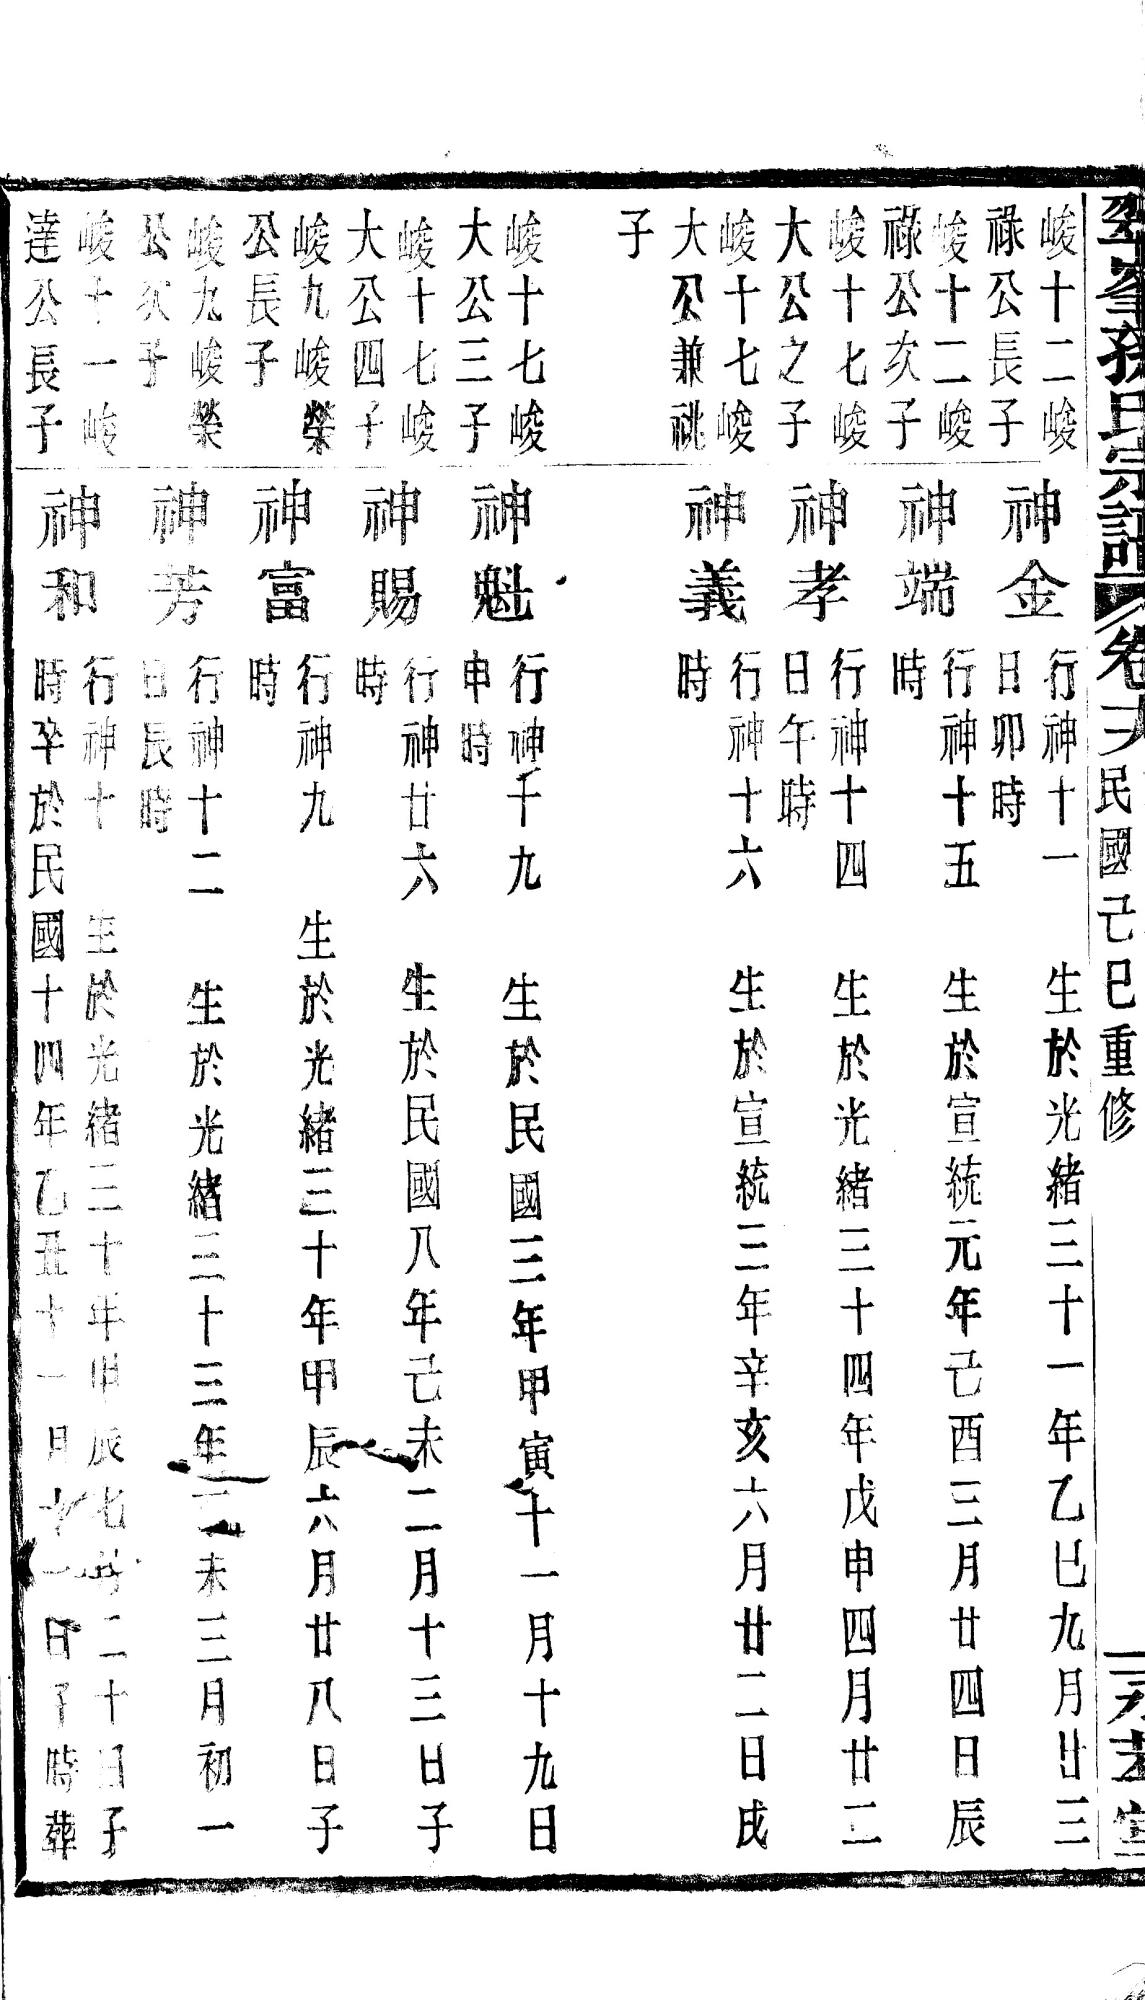 孫氏宗譜 卷 民國己巳重修
峻十二峻
祿公長子
神金
行神十一 生於光緒三十一年乙巳九月廿三
日卯時
峻十二峻
祿公次子
神端
行神十五 生於宣統元年己酉三月廿四日辰
時
峻十七峻
大公之子
神孝
行神十四 生於光緒三十四年戊申四月廿二
日午時
峻十七峻
大公兼祧
子
神義
行神十六 生於宣統三年辛亥六月廿二日戌
時
峻十七峻
大公三子
神魁
行神十九 生於民國三年甲寅十一月十九日
申時
峻十七峻
大公四子
神賜
行神廿六 生於民國八年己未二月十三日子
時
峻九峻榮
公長子
神富
行神九 生於光緒三十年甲辰六月廿八日子
時
峻九峻榮
公次子
神芳
行神十二 生於光緒三十三年未三月初一
日辰時
峻十一峻
達公長子
神和
行神十 生於光緒三十年甲辰七月二十日子
時卒於民國十四年乙丑十一月十一日子時葬